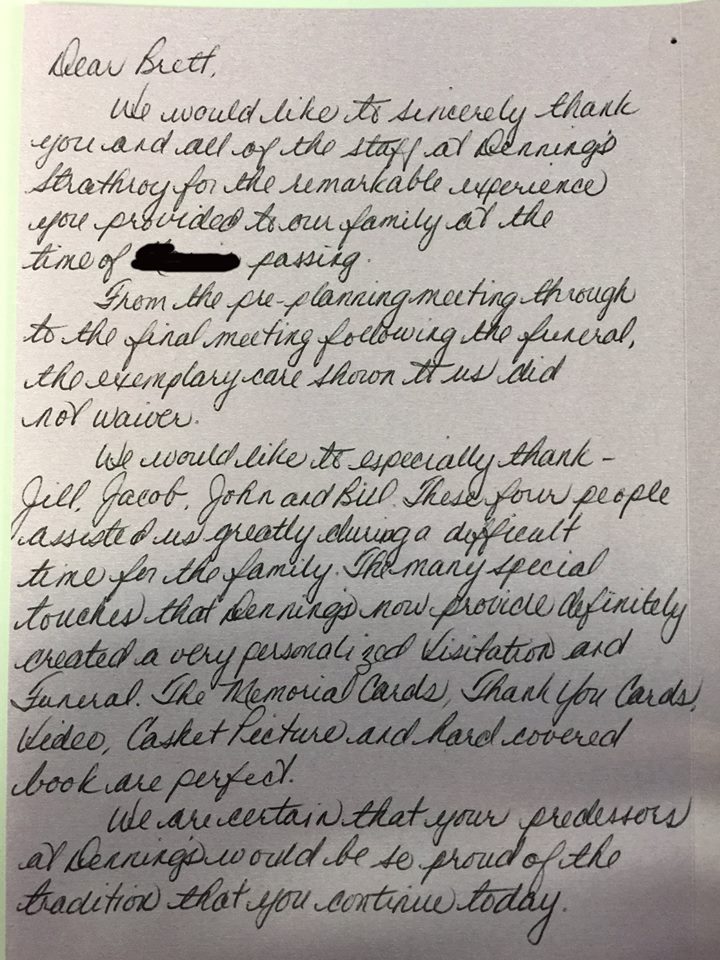 Dear Brett,
We would like to sincerely thank
you and all of the staff at Denning's
Strathroy for the remarkable experience
you provided to our family at the
time of passing.
From the pre-planning meeting through
to the final meeting following the funeral,
the exemplary care shown to us did
not waiver.
We would like to especially thank -
Jill, Jacob, John and Bill. These four people
assisted us greatly during a difficult
time for the family. The many special
touches that Denning's now provide definitely
created a very personalized Visitation and
Funeral. The Memorial Cards, Thank You Cards,
Video, Casket Picture and hard covered
book are perfect.
We are certain that your predessors
at Denning's would be so proud of the
tradition that you continue today.